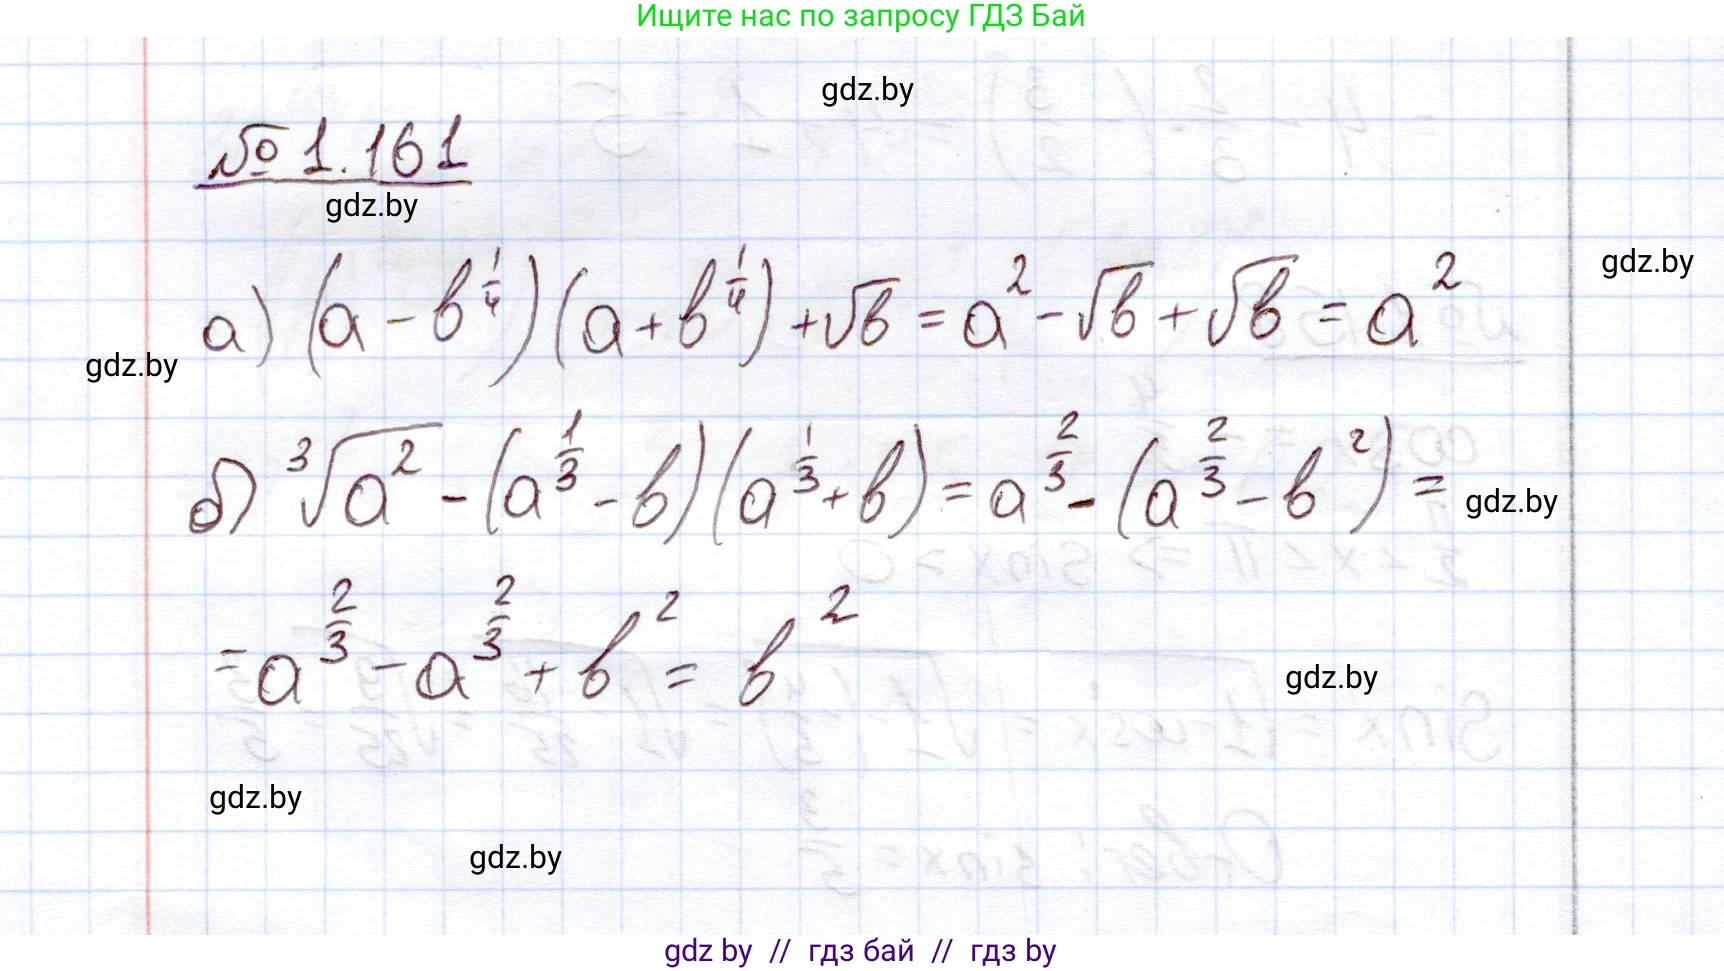 Ищите нас по запросу ГДЗ Бай
gdz.by
№ 1.161
gdz.by
gdz.by
а) (a - b^{1/4})(a + b^{1/4}) + √b = a^2 - √b + √b = a^2
gdz.by
б) ∛a^2 - (a^{1/3} - b)(a^{1/3} + b) = a^{2/3} - (a^{2/3} - b^2) =
gdz.by
= a^{2/3} - a^{2/3} + b^2 = b^2
gdz.by
gdz.by
gdz.by
gdz by // гдз бай // гдз by